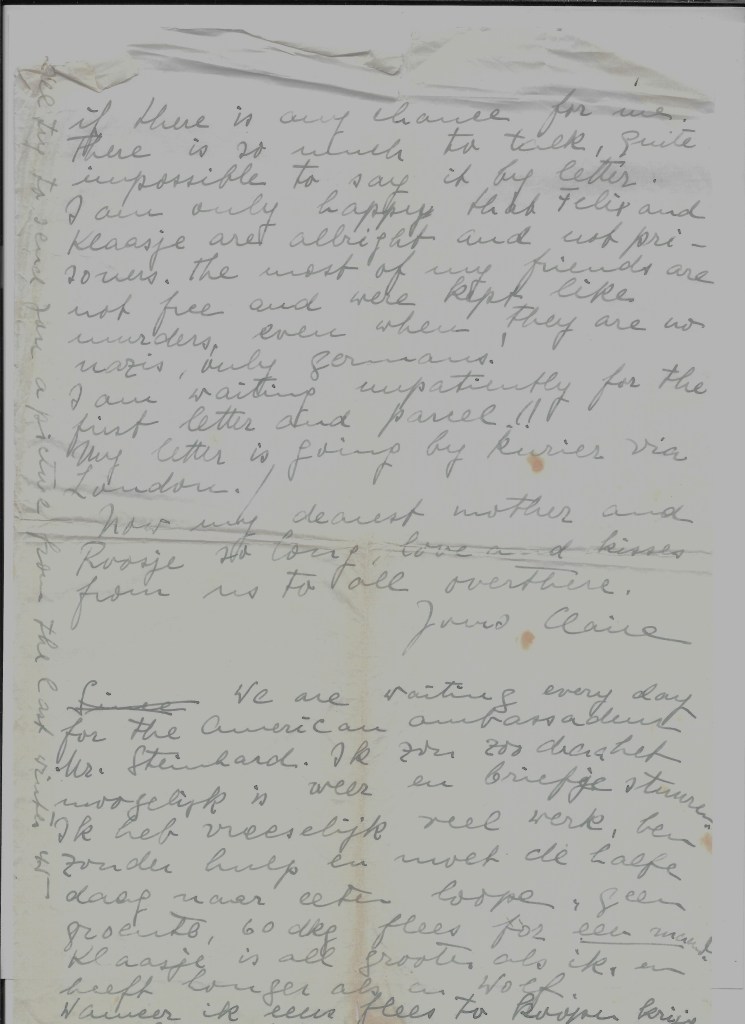 if there is any chance for me.
There is so much to talk, quite
impossible to say it by letter.
I am only happy that Felix and
Klaasje are allright and not pri-
soners. The most of my friends are
not free and were kept like
murders, even when they are no
nazis, only germans.
I am waiting unpatiently for the
first letter and parcel!!
My letter is going by kurier via
London.!
Now my dearest mother and
Roosje so long, love and kisses
from us to all overthere.
Yours Claire
Since We are waiting every day
for the American ambassadeur
Mr. Steinhard. Ik zou zoo dra het
mogelijk is weer en briefje sturen.
Ik heb vreeselijk veel werk, ben
zonder hulp en moet de halfe
daag naar eeten loope, geen
groente, 60 dkg flees for een maand.
Klaasje is all grooter als ik, en
heeft honger als en Wolf.
Wanneer ik eens flees to koopen krijg
try to send you a picture from the last winter 45